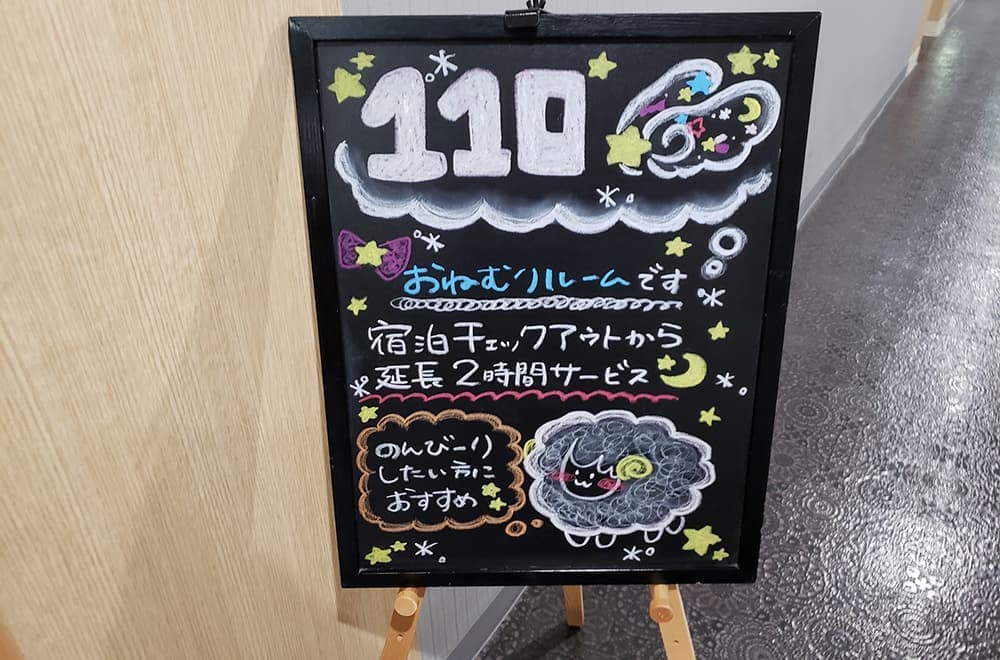 110
おねむりルームです
宿泊チェックアウトから
延長2時間サービス
のんびーり
したい方に
おすすめ